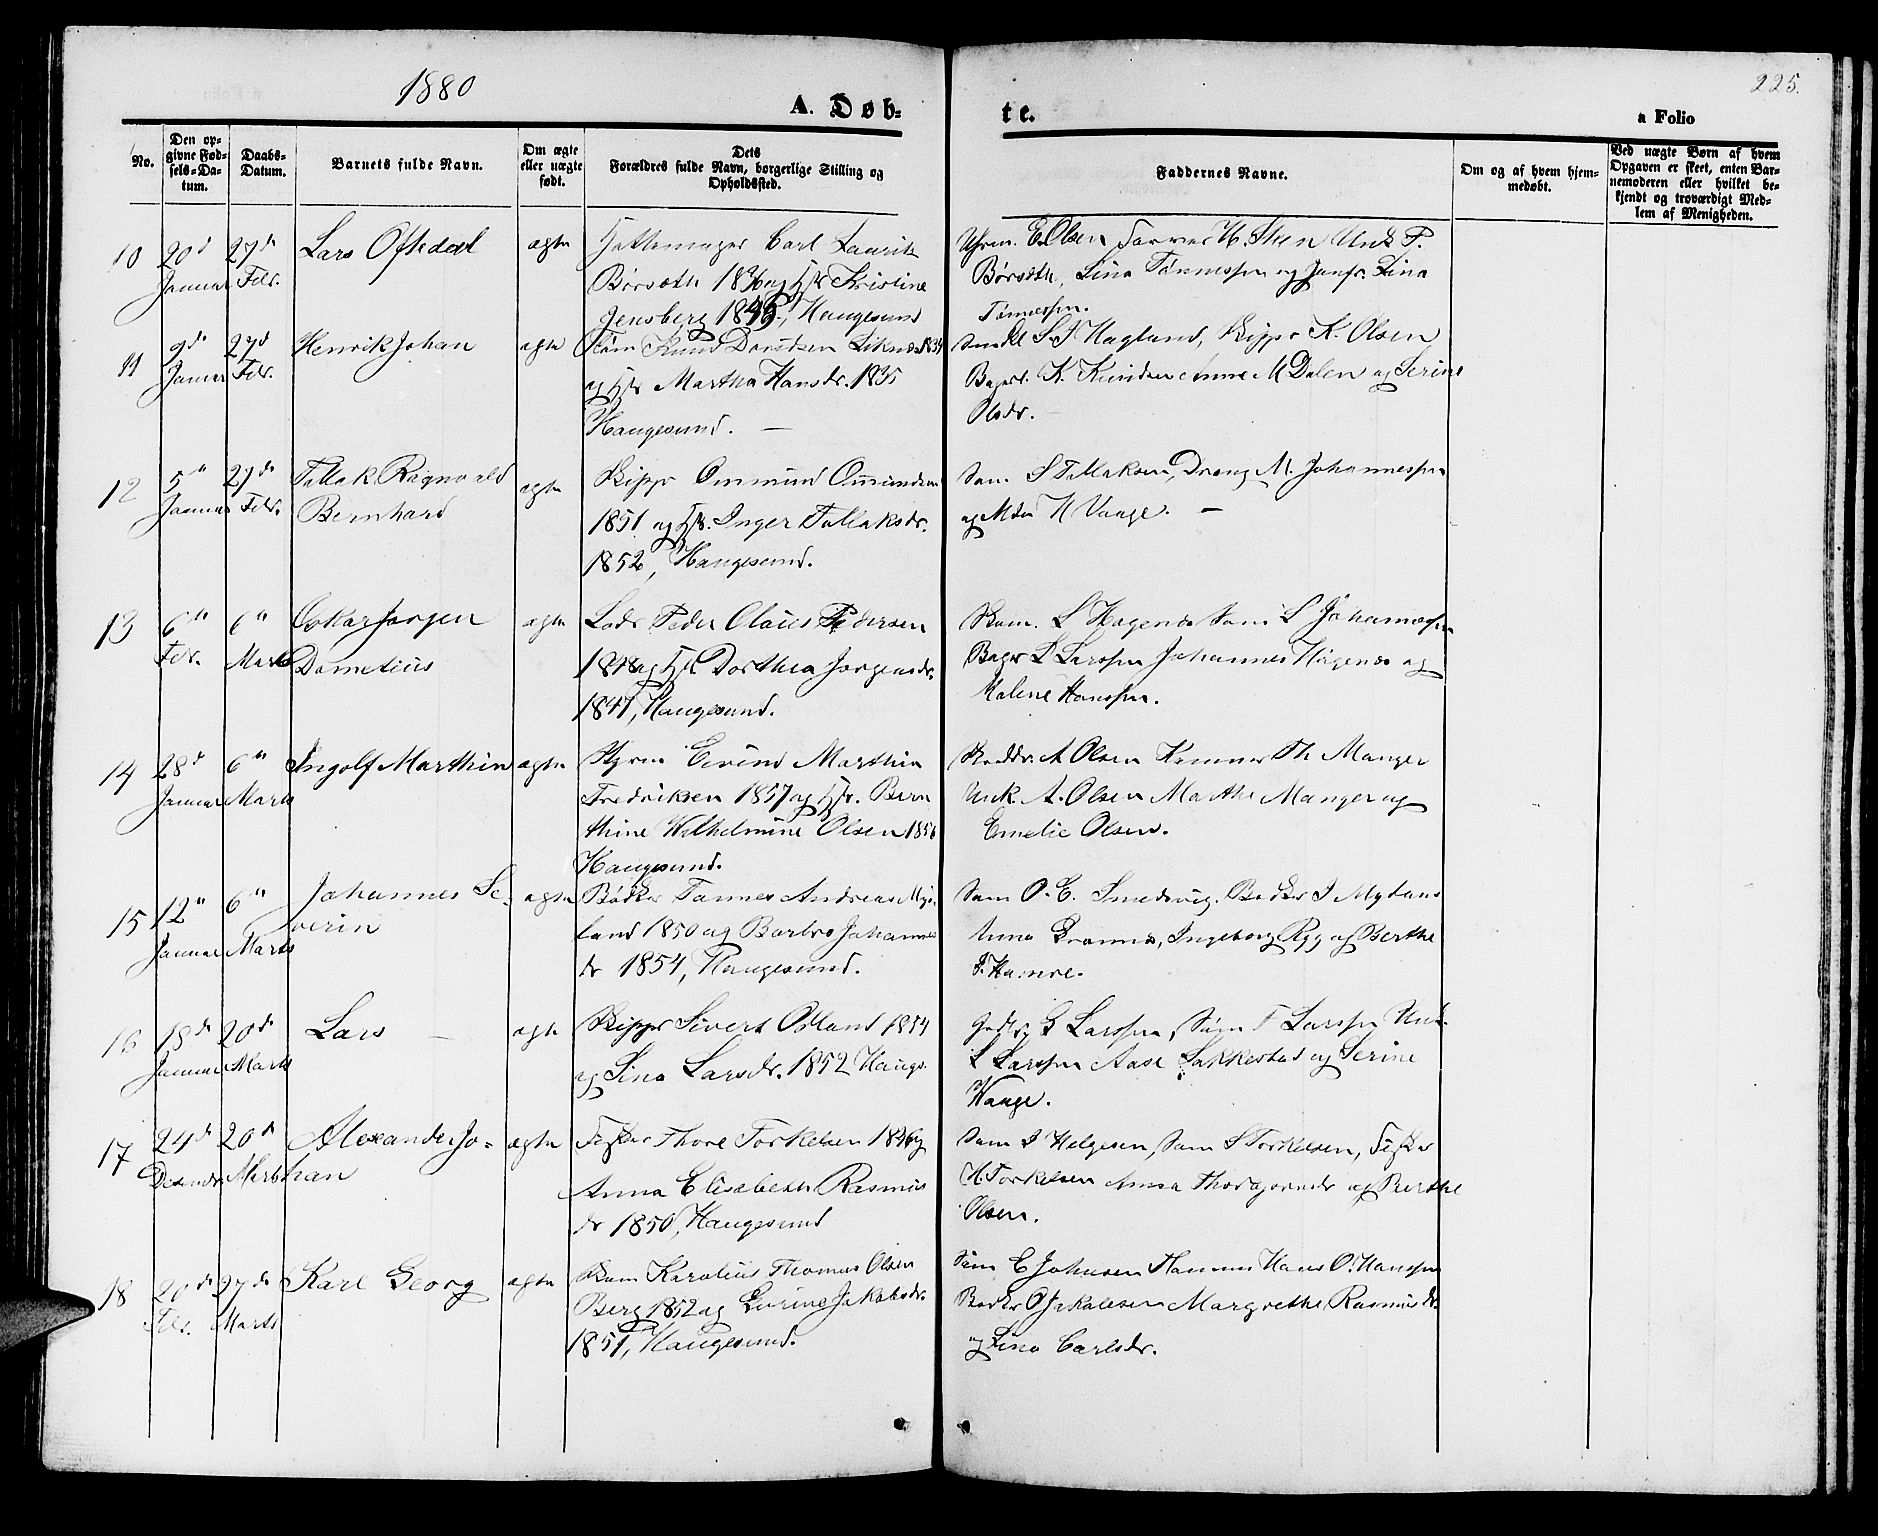 1880
225.
A. Døb-
te.
a Folio
No.
Den op-
givne Fød-
sels-Da-
tum.
Daabs-
Datum.
Barnets fulde Navn.
Om ægte
eller uægte
født.
Dets
Forældres fulde Navn, borgerlige Stilling og
Opholdssted.
Faddernes Navne.
Om og af hvem hjem-
medøbt.
Ved uægte Børn af hvem
Opgaven er skeet, enten Bar-
nemoderen eller hvilket be-
kjendt og troværdigt Med-
lem af Menigheden.
10
20d
Januar
27de
Febr.
Lars Oftedal
ægte
Hattemager Carl Laurits
Børseth 1836 og Hst Kristine
Jensberg 1845, Haugesund
E. Olsen Garver H. Steen Unk P.
Børseth, Lina Tønnessen og Jomfr. Lina
Tønnessen.
11
9de
Januar
27d
Febr.
Henrik Johan
ægte
Tøm Knud Davidsen Liknes 1834
og Hst Martha Hansdr. 1835
Haugesund. —
S. J Hagland, Skippr K. Olsen
Bager K. Knudsen Anne M Dalen og Serine
Olsdr.
12
5"
Januar
27de
Febr.
Tallak Ragnvald
Bernhard
ægte
Skippr Ommund Ommundsen
1851 og Hst. Inger Tallaksdr.
1852, Haugesund.
Søm. S Tallaksen, Dreng M. Johannessen
og M H Vaage. —
13
6te
Febr.
6te
Marts
Oskar Jørgen
Dometius
ægte
Lods Peder Olaus Pedersen
1848 og Hst Dorthea Jørgensdr.
1847, Haugesund.
Skom. L Hagenæs Søm L Johannessen
Bager L Larssen Johannes Hagenæs og
Malene Hanssen.
14
28d
Januar
6te
Marts
Ingolf Marthin
ægte
Styrm Eivind Marthin
Fredriksen 1857 og Hst. Bern
thine Wilhelmine Olsen 1856
Haugesund.
Skreddr. A Olsen Kemner Th Manger
Unk. A. Olsen Marthe Manger og
Emelie Olsen.
15
12te
Januar
6te
Marts
Johannes Se-
verin
ægte
Bødker Tønnes Andreas Myd-
land 1850 og Barbro Johannes
dr 1854, Haugesund.
Søm O. E. Smedsvig. Bødker J Mydland
Anna Grønnæs, Ingeborg Rygg og Berthe
J. Hamre.
16
18de
Januar
20de
Marts
Lars —
ægte
Skippr Sivert Odland 1854
og Lina Larsdr. 1852 Haugs.
G Larssen, Søm T Larssen Unk.
L Larssen Aase Sakkestad og Serine
Vaage.
17
24de
Decembr
20de
Marts
Alexander Jo-
han
ægte
Fisker Thore Torkelsen 1846 og
Anna Elisabeth Rasmus
dr 1850, Haugesund
Søm J Helgesen, Søm S Torkelsen, Fisker
H. Torkelsen Anna Thorbjørnsdr og Berthe
Olsen.
18
20de
Febr.
27de
Marts
Karl Georg
ægte
Skom Karolius Thomas Olsen
Berg 1852 og Gurine Jakobsdr.
1851, Haugesund.
Søm E Johnsen Hans O. Hanssen
Bødker O Jakobsen Margrethe Rasmusdr.
og Lina Carlsdr.